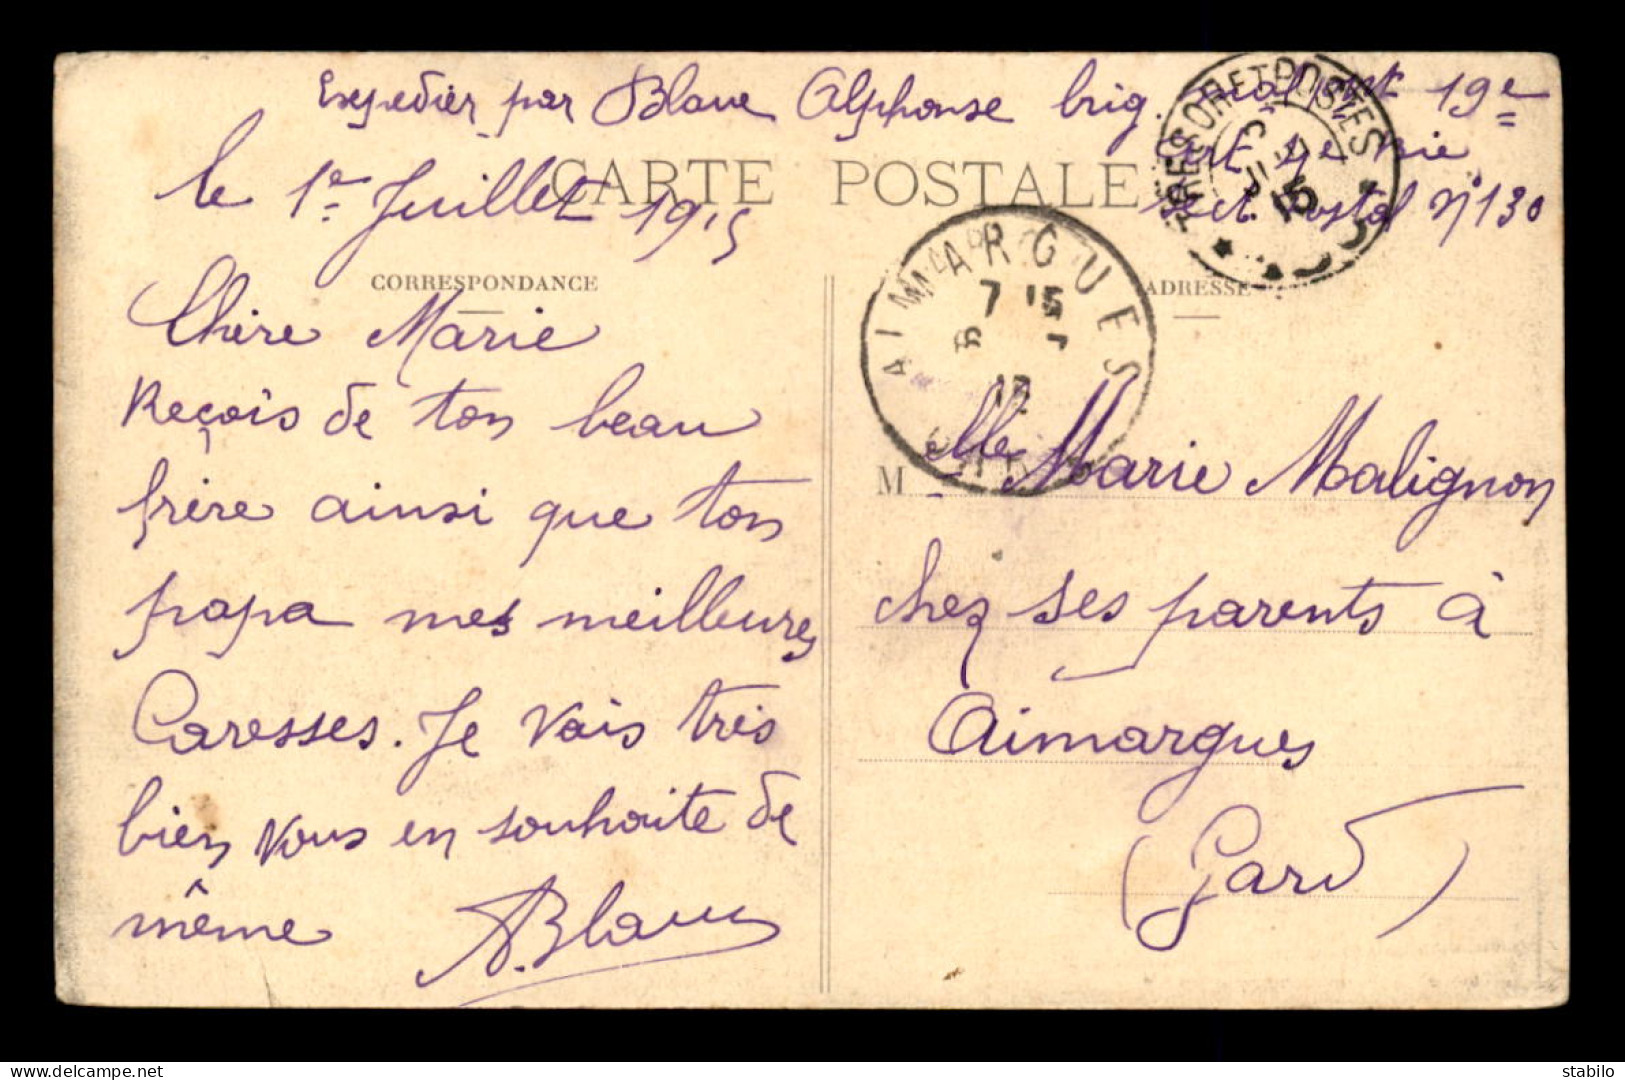 Expedier par Blanc Alphonse brig. 19e
art 4e Bie
sect. Postal n° 130
CARTE POSTALE
le 1er Juillet 1915
TRESOR ET POSTES
CORRESPONDANCE
ADRESSE
AIMARGUES
7 15
Chère Marie
Reçois de ton beau
frère ainsi que ton
papa mes meilleures
Caresses. Je vais très
bien vous en souhaite de
même A. Blanc
M
elle Marie Malignon
chez ses parents à
Aimargues
(Gard)
delcampe.net
stabilo